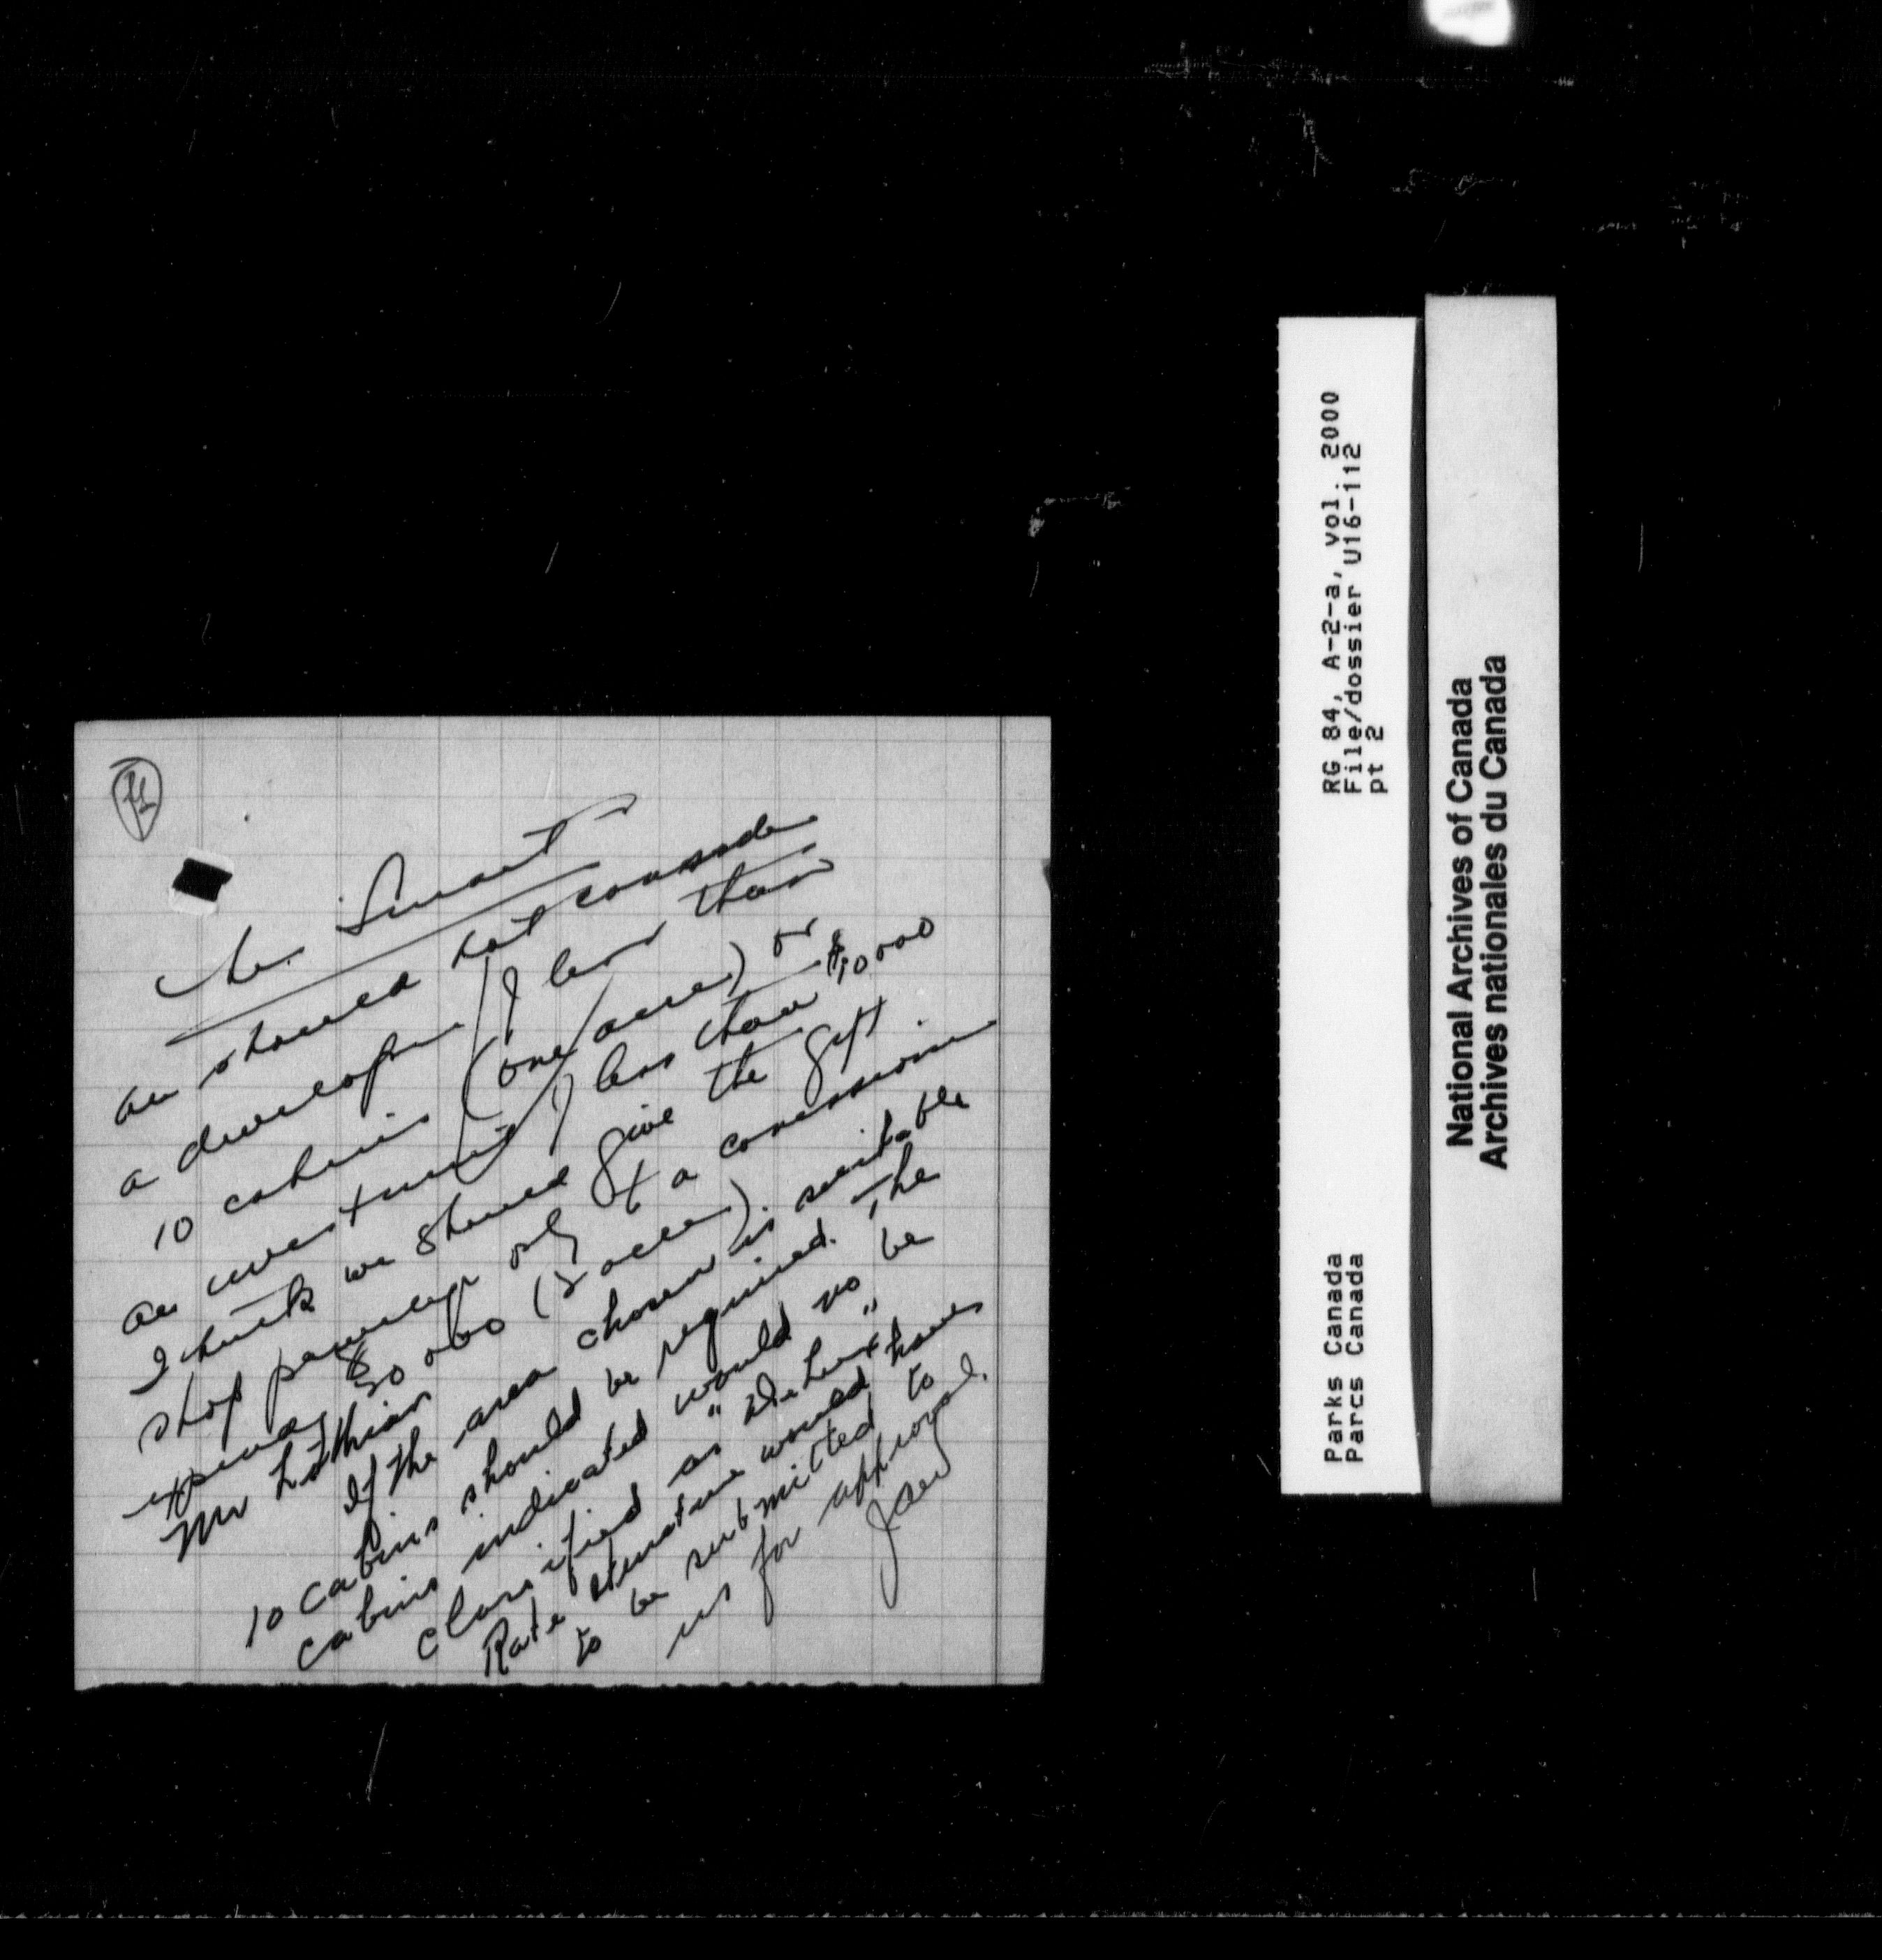 Mr. Smart
We should not consider
a development of less than
10 cabins (one acre) or
an investment less than $10000
I think we should give the gift
shop privilege only to a concession
expending $30 000 (2 acres).
Mr Lothian
If the area chosen is suitable
10 cabins should be required. The
cabins indicated would no be
classified as "deluxe"
Rate structure would have
to be submitted to
us for approval.
RG 84, A-2-a, vol. 2000
File/dossier U16-112
pt 2
Parks Canada
Parcs Canada
National Archives of Canada
Archives nationales du Canada